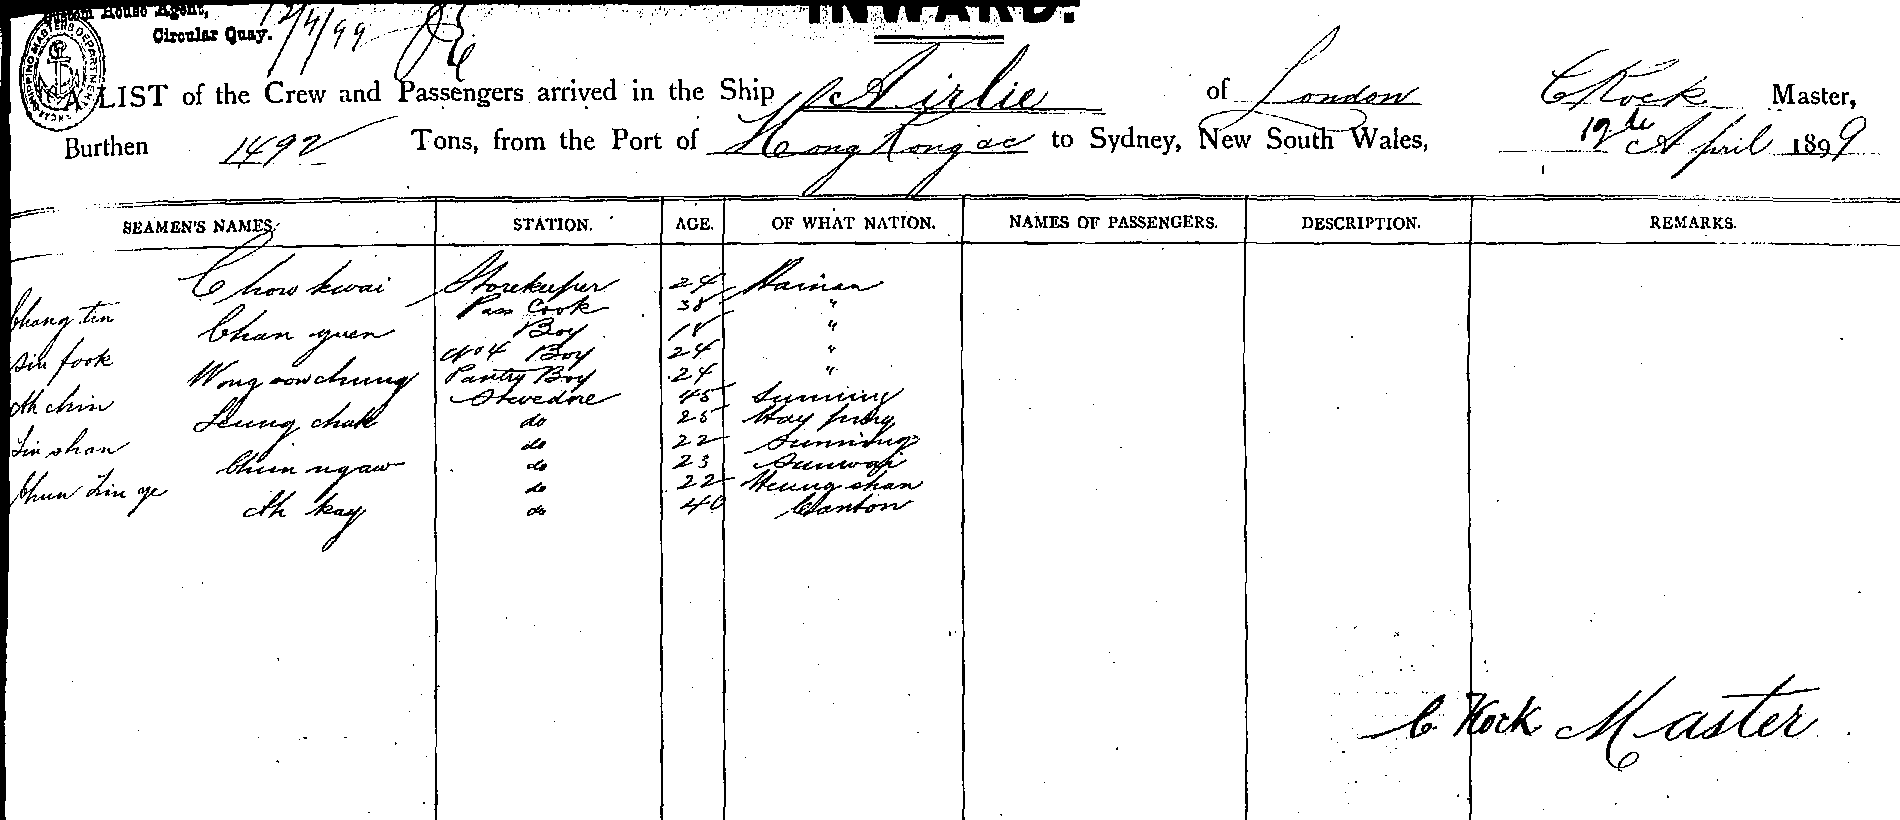 INWARD.
Custom House Agent,
Circular Quay. 12/4/99
A LIST of the Crew and Passengers arrived in the Ship SS Airlie of London C Kock Master,
Burthen 1492 Tons, from the Port of Hong Kong &c to Sydney, New South Wales, 12th April 1899
SEAMEN'S NAMES. STATION. AGE. OF WHAT NATION. NAMES OF PASSENGERS. DESCRIPTION. REMARKS.
Chow kwai Storekeeper 24 Hainan
Chang tin Pass Cook 38 "
Chan yuen Boy 18 "
Sin fook No 4 Boy 24 "
Wong sow chung Pantry Boy 24 "
Ah chin Stevedore 45 Sunning
Leung chak do 25 Hoy ping
Lin shan do 22 Sunning
Chin ngaw do 23 Sunwoi
Chun Lin ye do 22 Heung shan
Ah kay do 40 Canton
C. Kock Master